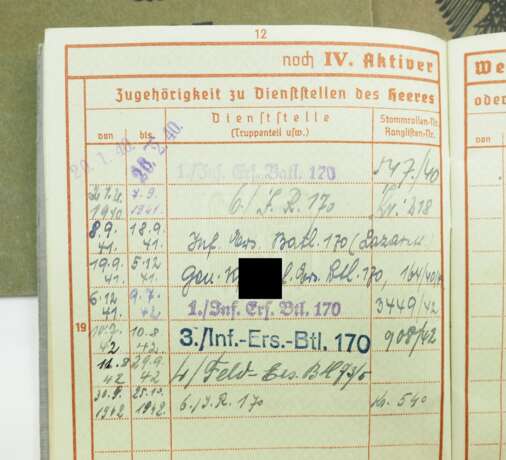 12
noch IV. Aktiver
We
Zugehörigkeit zu Dienststellen des Heeres
oder
von
bis
Dienststelle
(Truppenteil usw.)
Stammrollen-Nr.
Ranglisten-Nr.
von
20. 1. 40. 1./Inf. Ers. Batl. 170 547/40
1940 7.9. 1941. 6./I.R. 170
8.9. 41. 18.9. 41. Inf. Ers. Batl. 170 (Lazarett
19.9. 41. 5.12 41. Gen. K Ers. Btl. 170,
6.12 41 9.7. 42 1./Inf. Ers. Btl. 170 3449/42
19
42 10.8. 42. 3./Inf.-Ers.-Btl. 170 908/42
11.8 42 29.9. 42 4/Feld-Ers. Btl
30.9. 1942 25.10. 1942. 6./I.R. 170 Nr. 540